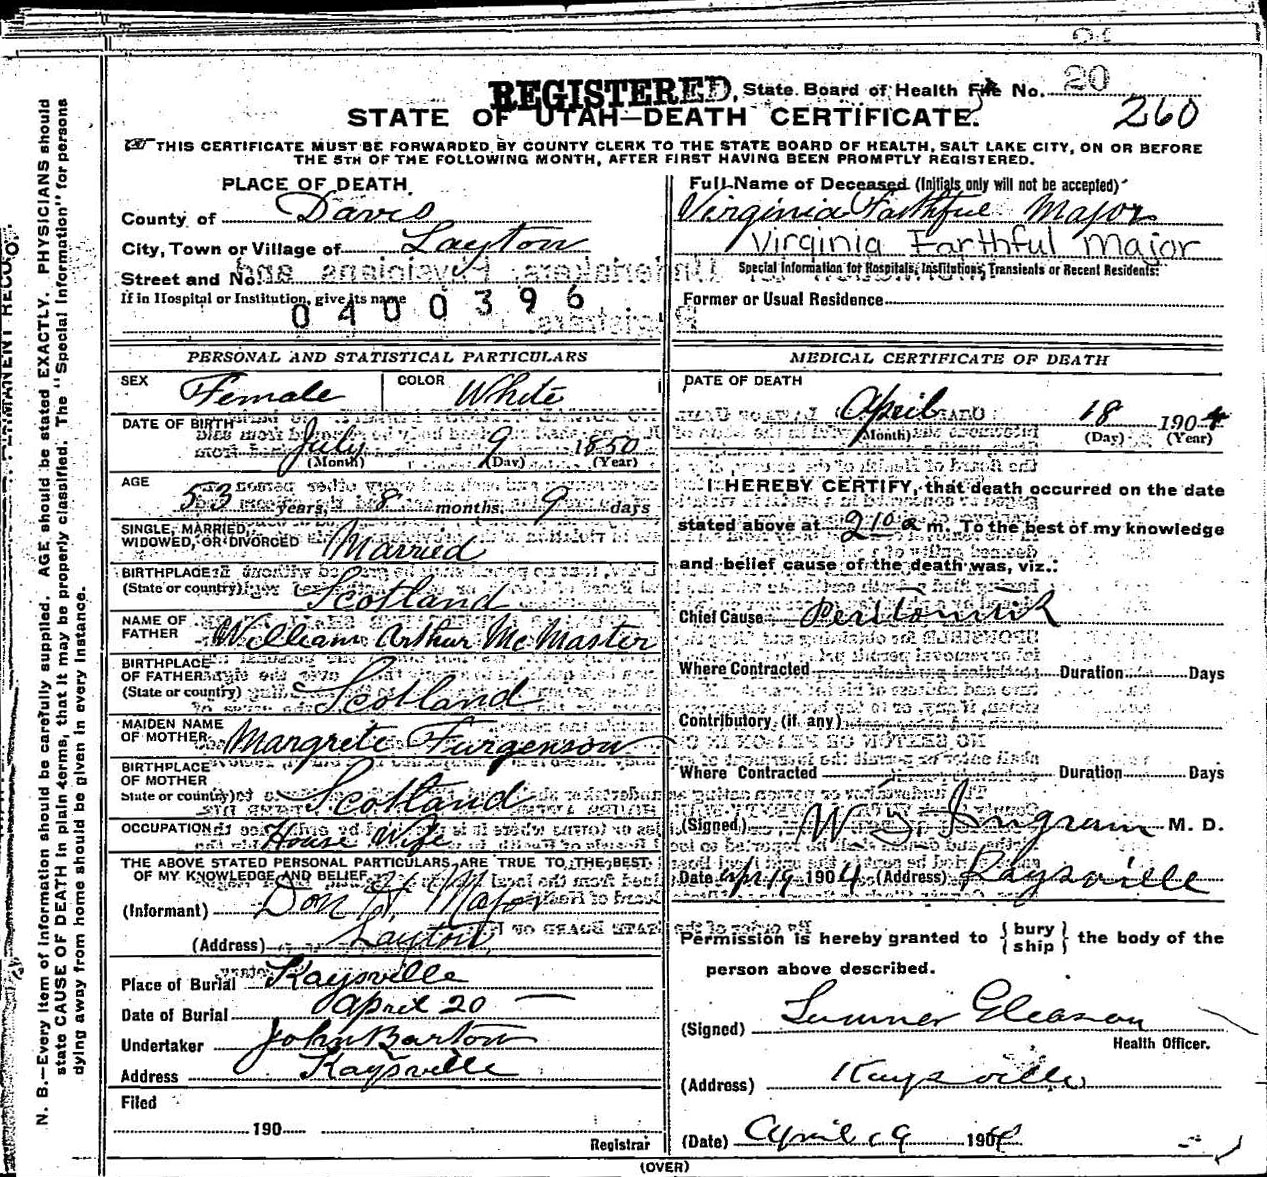 REGISTERED, State Board of Health File No. 20
STATE OF UTAH—DEATH CERTIFICATE. 260
THIS CERTIFICATE MUST BE FORWARDED BY COUNTY CLERK TO THE STATE BOARD OF HEALTH, SALT LAKE CITY, ON OR BEFORE
THE 5TH OF THE FOLLOWING MONTH, AFTER FIRST HAVING BEEN PROMPTLY REGISTERED.
PLACE OF DEATH.
County of Davis
City, Town or Village of Layton
Street and No.
If in Hospital or Institution, give its name
0400396
Full Name of Deceased (Initials only will not be accepted)
Virginia Faithful Major
Virginia Faithful Major
Special Information for Hospitals, Institutions, Transients or Recent Residents:
Former or Usual Residence
PERSONAL AND STATISTICAL PARTICULARS
SEX Female COLOR White
DATE OF BIRTH July 9 1850
(Month) (Day) (Year)
AGE 53 years, 8 months, 9 days
SINGLE, MARRIED,
WIDOWED, OR DIVORCED Married
BIRTHPLACE
(State or country) Scotland
NAME OF
FATHER William Arthur McMaster
BIRTHPLACE
OF FATHER
(State or country) Scotland
MAIDEN NAME
OF MOTHER Margrete Furgenson
BIRTHPLACE
OF MOTHER
State or country) Scotland
OCCUPATION House Wife
THE ABOVE STATED PERSONAL PARTICULARS ARE TRUE TO THE BEST
OF MY KNOWLEDGE AND BELIEF
(Informant) Don H. Major
(Address) Layton
Place of Burial Kaysville
Date of Burial April 20
Undertaker John Barton
Address Kaysville
Filed
190
Registrar
MEDICAL CERTIFICATE OF DEATH
DATE OF DEATH
April 18 1904
(Month) (Day) (Year)
I HEREBY CERTIFY, that death occurred on the date
stated above at 2 10 a m. To the best of my knowledge
and belief cause of the death was, viz.:
Chief Cause
Where Contracted Duration Days
Contributory (if any)
Where Contracted Duration Days
(Signed) W S Ingram M. D.
Date Apr 19 1904 (Address) Kaysville
Permission is hereby granted to {bury
ship} the body of the
person above described.
(Signed) Sumner Gleason
Health Officer.
(Address) Kaysville
(Date) April 19 1904
(OVER)
N. B.—Every item of information should be carefully supplied. AGE should be stated EXACTLY. PHYSICIANS should
state CAUSE OF DEATH in plain terms, that it may be properly classified. The "Special Information" for persons
dying away from home should be given in every instance.